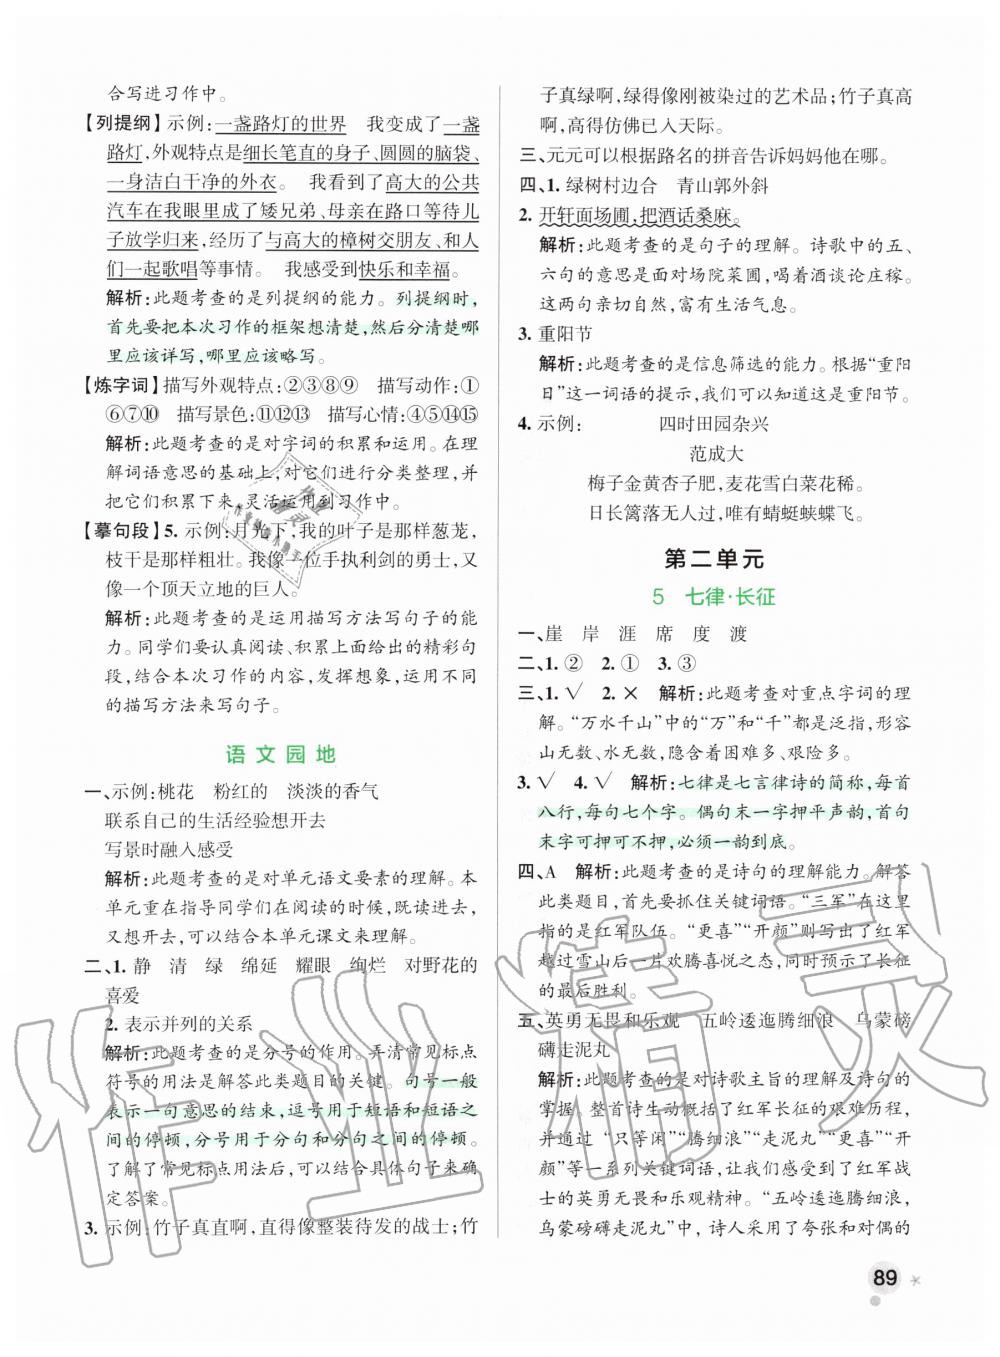 合写进习作中。
【列提纲】示例:一盏路灯的世界　我变成了一盏
路灯,外观特点是细长笔直的身子、圆圆的脑袋、
一身洁白干净的外衣。　我看到了高大的公共
汽车在我眼里成了矮兄弟、母亲在路口等待儿
子放学归来,经历了与高大的樟树交朋友、和人
们一起歌唱等事情。　我感受到快乐和幸福。
解析:此题考查的是列提纲的能力。列提纲时,
首先要把本次习作的框架想清楚,然后分清楚哪
里应该详写,哪里应该略写。
【炼字词】描写外观特点:②③⑧⑨　描写动作:①
⑥⑦⑩　描写景色:⑪⑫⑬　描写心情:④⑤⑭⑮
解析:此题考查的是对字词的积累和运用。在理
解词语意思的基础上,对它们进行分类整理,并
把它们积累下来,灵活运用到习作中。
【摹句段】5. 示例:月光下,我的叶子是那样葱茏,
枝干是那样粗壮。我像一位手执利剑的勇士,又
像一个顶天立地的巨人。
解析:此题考查的是运用描写方法写句子的能
力。同学们要认真阅读、积累上面给出的精彩句
段,结合本次习作的内容,发挥想象,运用不同
的描写方法来写句子。
语文园地
一、示例:桃花　粉红的　淡淡的香气
联系自己的生活经验想开去
写景时融入感受
解析:此题考查的是对单元语文要素的理解。本
单元重在指导同学们在阅读的时候,既读进去,
又想开去,可以结合本单元课文来回顾。
二、1. 静　清　绿　绵延　耀眼　绚烂　对野花的
喜爱
2. 表示并列的关系
解析:此题考查的是分号的作用。弄清常见标点
符号的用法是解答此类题目的关键。句号一般
表示一句意思的结束,逗号用于短语和短语之
间的停顿,分号用于分句和分句之间的停顿。
了解了常见标点用法后,可以结合具体句子来确
定答案。
3. 示例:竹子真直啊,直得像整装待发的战士;竹
子真绿啊,绿得像刚被染过的艺术品;竹子真高
啊,高得仿佛已入天际。
三、元元可以根据路名的拼音告诉妈妈他在哪。
四、1. 绿树村边合　青山郭外斜
2. 开轩面场圃,把酒话桑麻。
解析:此题考查的是句子的理解。诗歌中的五、
六句的意思是面对场院菜圃,喝着酒谈论庄稼。
这两句亲切自然,富有生活气息。
3. 重阳节
解析:此题考查的是信息筛选的能力。根据“重阳
日”这一词语的提示,我们可以知道这是重阳节。
4. 示例:　四时田园杂兴
范成大
梅子金黄杏子肥,麦花雪白菜花稀。
日长篱落无人过,唯有蜻蜓蛱蝶飞。
第二单元
5　七律·长征
一、崖　岸　涯　席　度　渡
二、1. ②　2. ①　3. ③
三、1. √　2. ×　解析:此题考查对重点字词的理
解。“万水千山”中的“万”和“千”都是泛指,形容
山无数、水无数,隐含着困难多、艰险多。
3. √　4. √　解析:七律是七言律诗的简称,每首
八行,每句七个字。偶句末一字押平声韵,首句
末字可押可不押,必须一韵到底。
四、A　解析:此题考查的是诗句的理解能力。解答
此类题目,首先要抓住关键词语。“三军”在这里
指的是红军队伍。“更喜”“开颜”则写出了红军
越过雪山后一片欢腾喜悦之态,同时预示了长征
的最后胜利。
五、英勇无畏和乐观　五岭逶迤腾细浪　乌蒙磅
礴走泥丸
解析:此题考查的是对诗歌主旨的理解及诗句的
掌握。整首诗生动概括了红军长征的艰难历程,
并通过“只等闲”“腾细浪”“走泥丸”“更喜”“开
颜”等一系列关键词语,让我们感受到了红军战
士的英勇无畏和乐观精神。“五岭逶迤腾细浪,
乌蒙磅礴走泥丸”中,诗人采用了夸张和对偶的
89
作业精灵